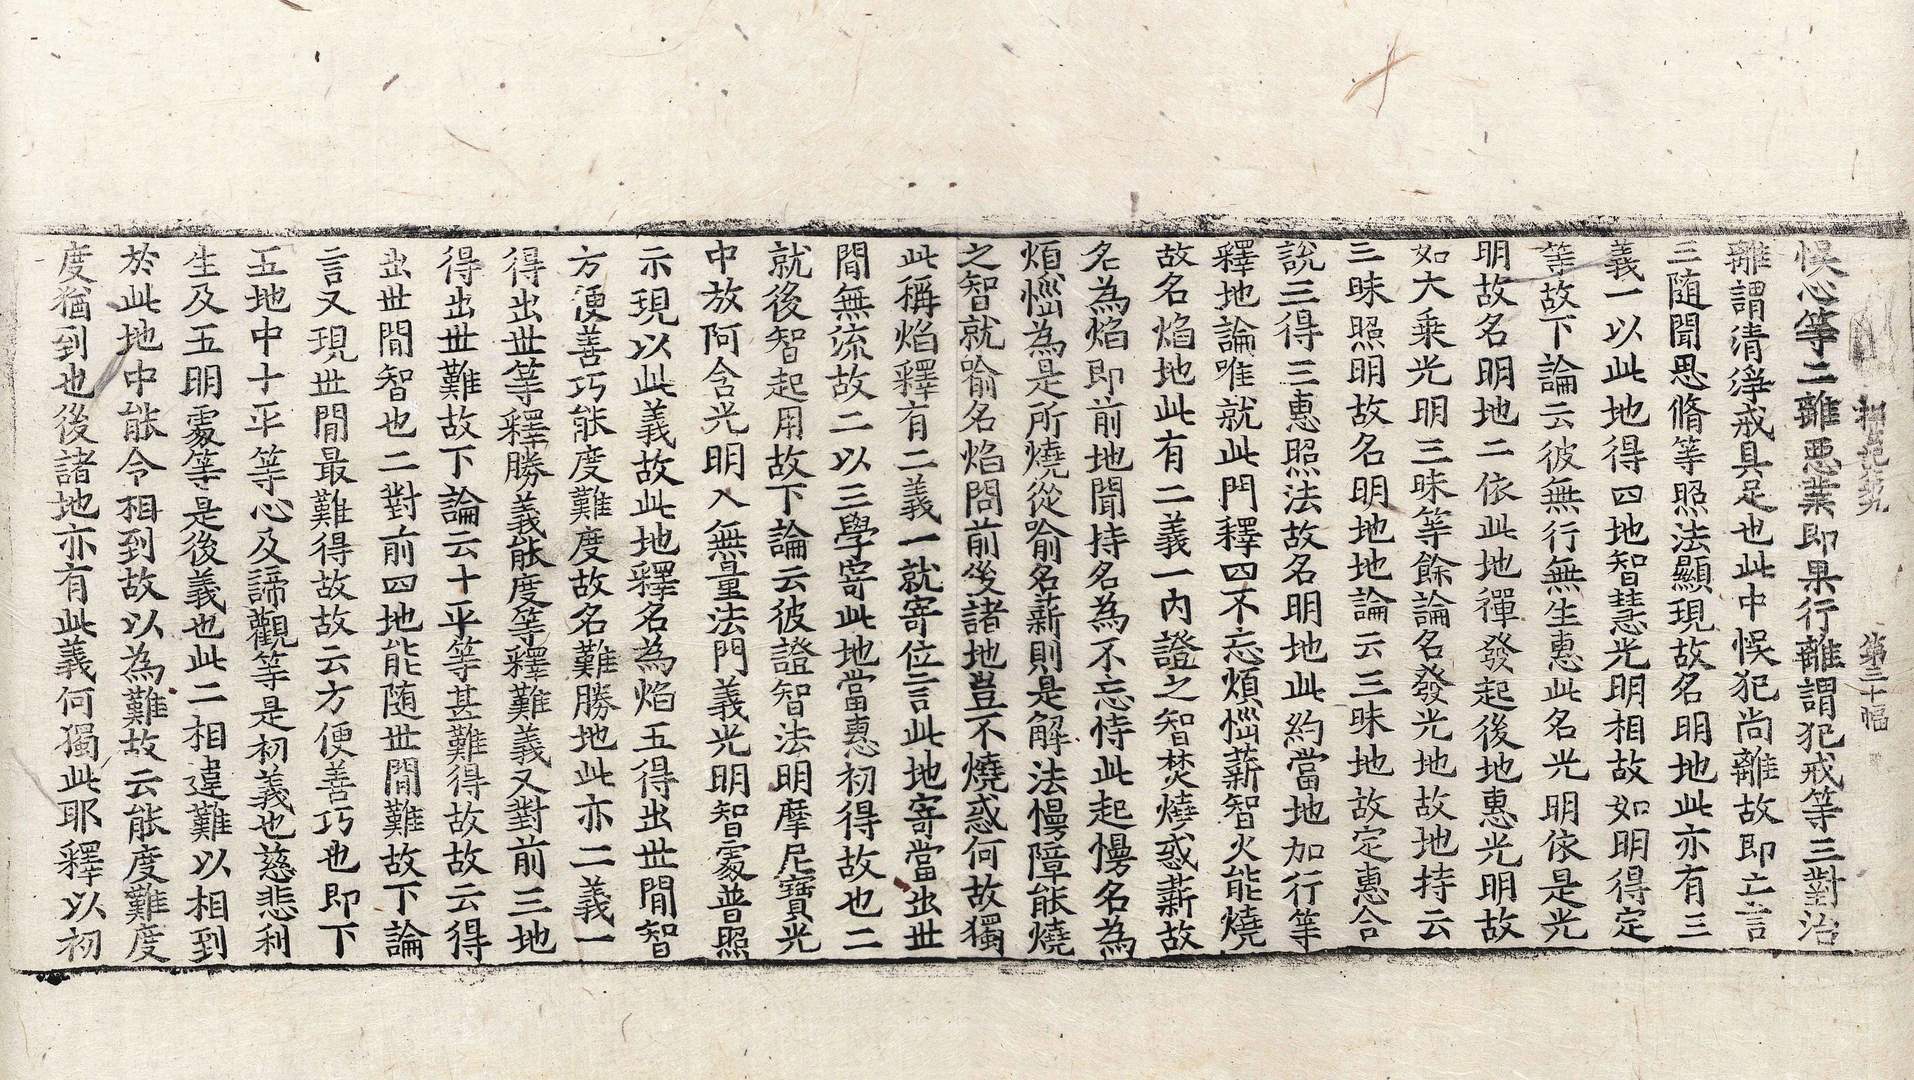 悞心等二離惡業即果行離謂犯戒等三對治
離謂清淨戒具足也此中悞犯尚離故即亡言
三隨聞思脩等照法顯現故名明地此亦有三
義一以此地得四地智慧光明相故如明得定
等故下論云彼無行無生惠此名光明依是光
明故名明地二依此地彈發起後地惠光明故
如大乘光明三昧等餘論名發光地故地持云
三昧照明故名明地地論云三昧地故定惠合
說三得三惠照法故名明地此約當地加行等
釋地論唯就此門釋四不忘煩惱薪智火能燒
故名焰地此有二義一內證之智焚燒惑薪故
名為焰即前地聞持名為不忘恃此起慢名為
煩惱為是所燒從喻名薪則是解法慢障能燒
之智就喻名焰問前後諸地豈不燒惑何故獨
此稱焰釋有二義一就寄位言此地寄當出世
間無流故二以三學寄此地當惠初得故也二
就後智起用故下論云彼證智法明摩尼寶光
中放阿含光明入無量法門義光明智處普照
示現以此義故此地釋名為焰五得出世間智
方便善巧能度難度故名難勝地此亦二義一
得出世等釋勝義能度等釋難義又對前三地
得出世難故下論云十平等甚難得故故云得
出世間智也二對前四地能隨世間難故下論
言又現世間最難得故故云方便善巧也即下
五地中十平等心及諦觀等是初義也慈悲利
生及五明處等是後義也此二相違難以相到
於此地中能令相到故以為難故云能度難度
度猶到也後諸地亦有此義何獨此耶釋以初